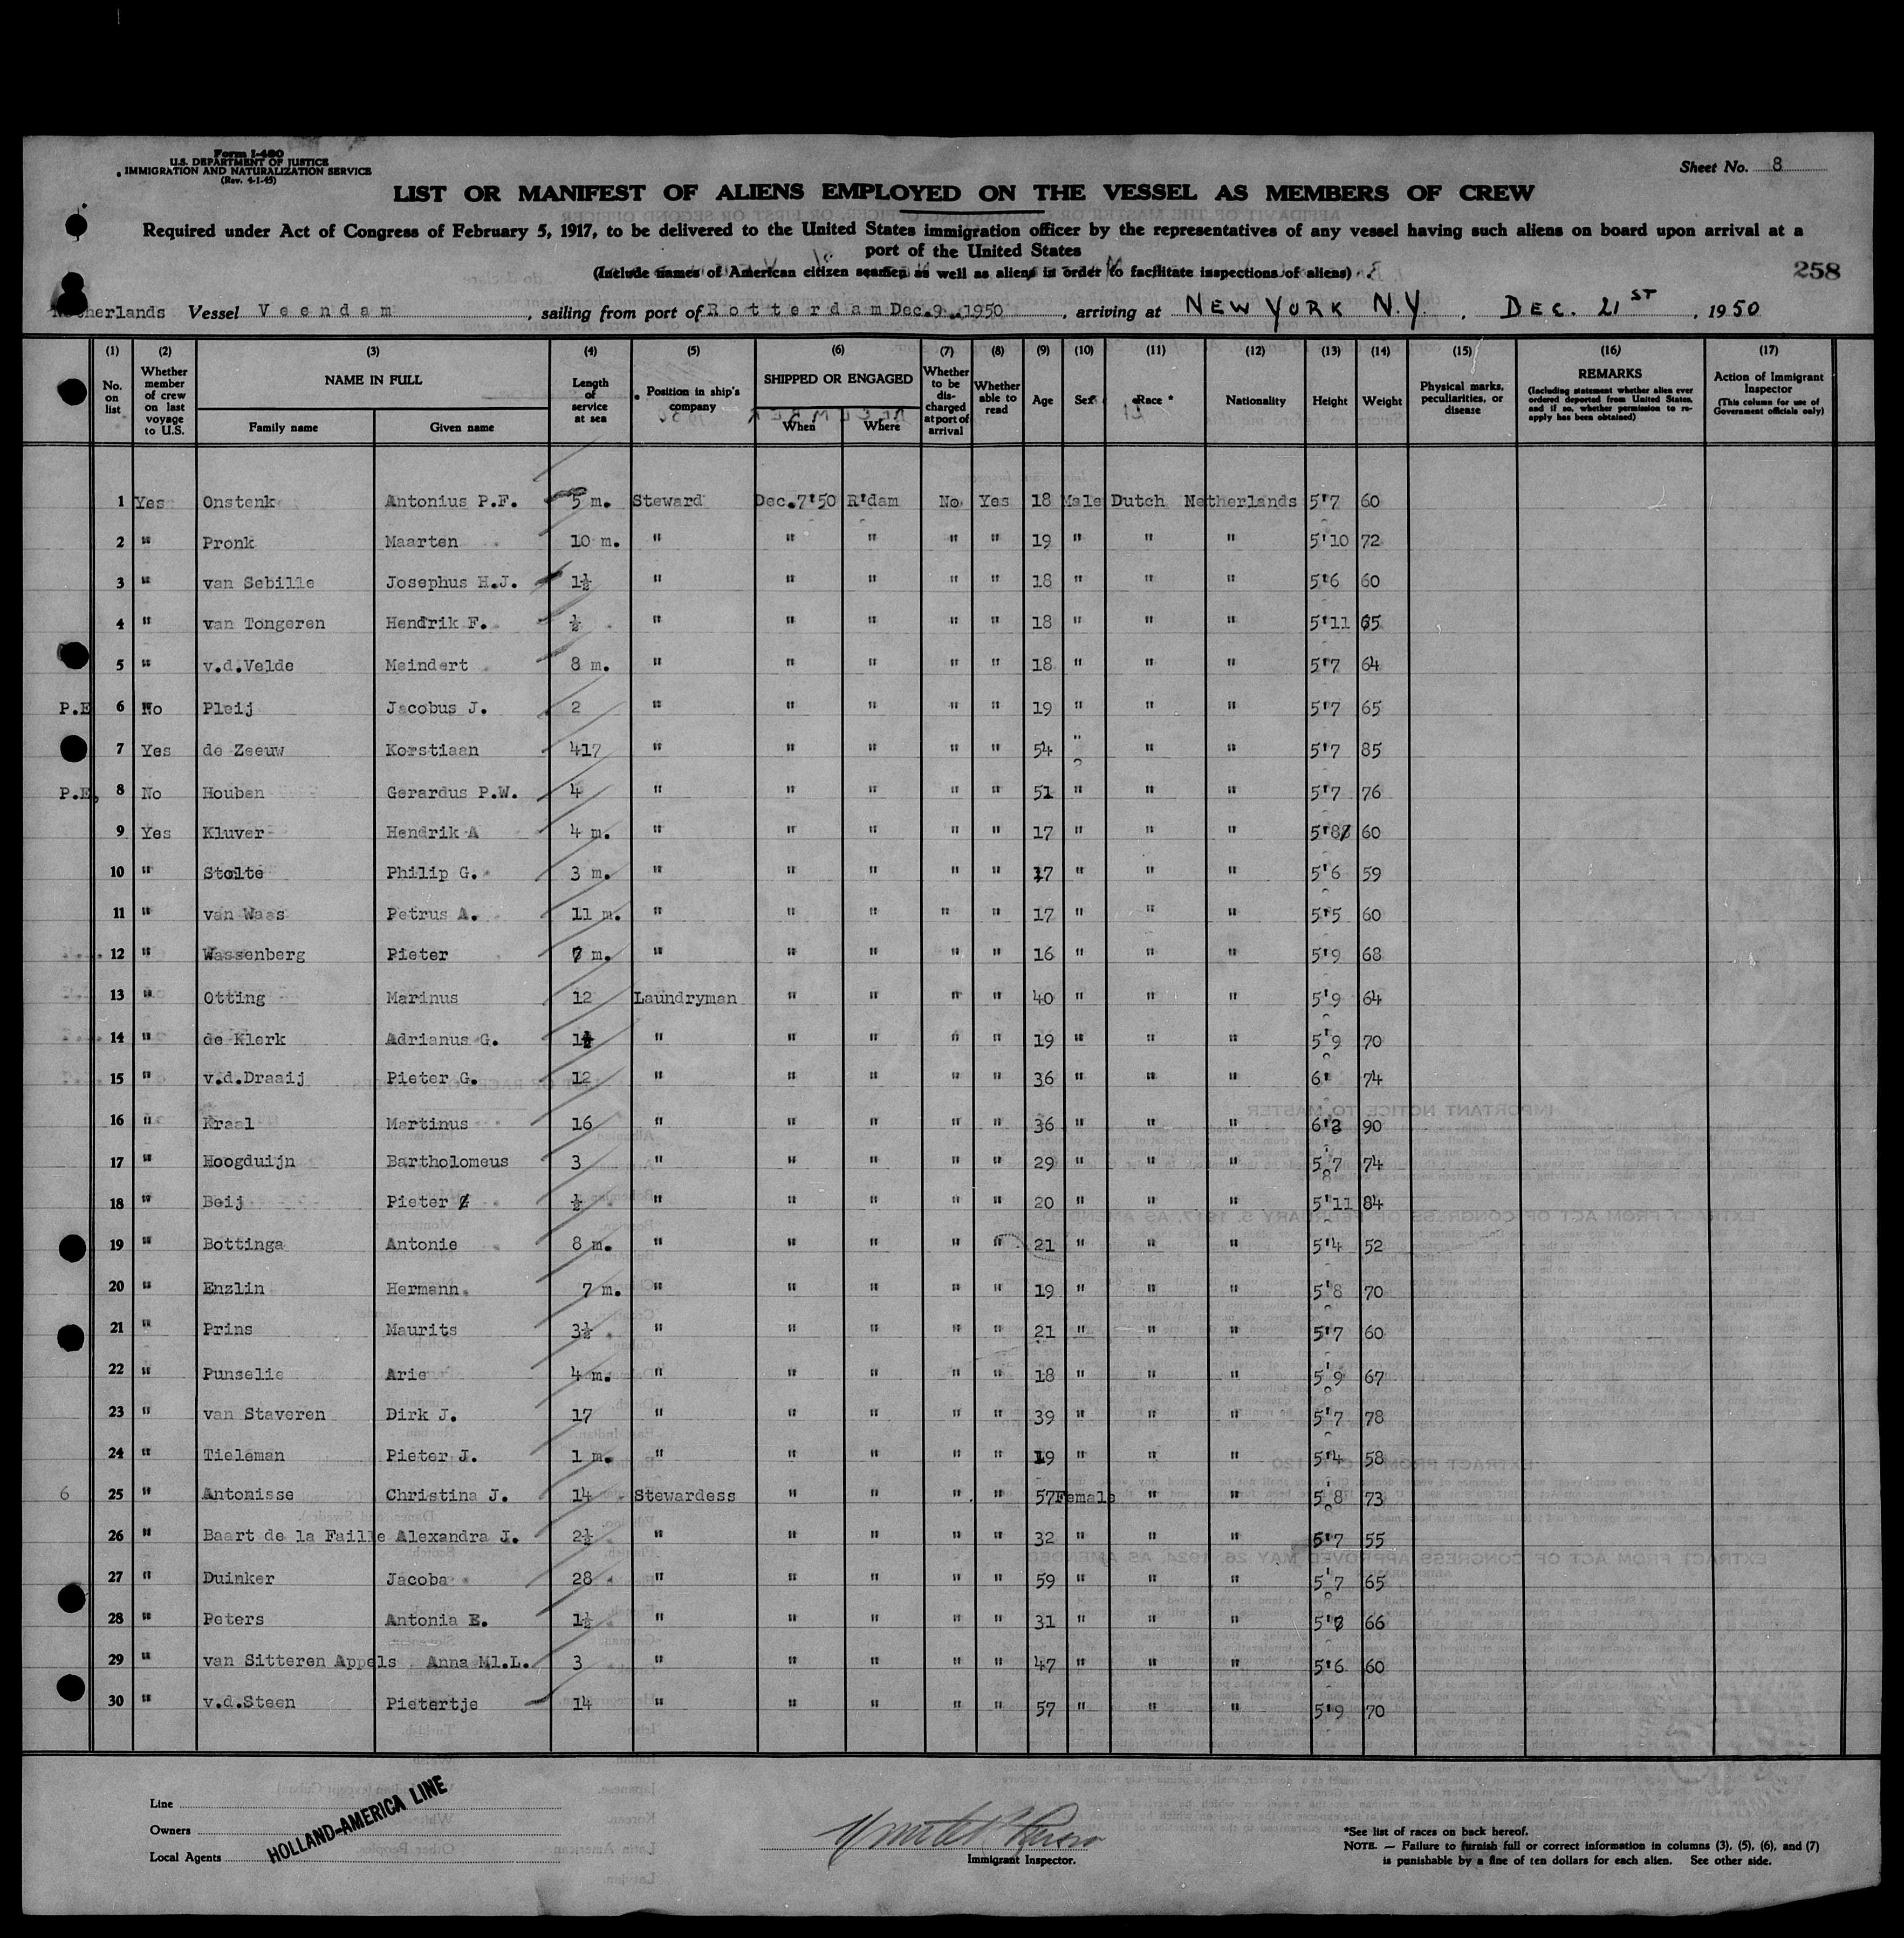 Form I-480
U.S. DEPARTMENT OF JUSTICE
IMMIGRATION AND NATURALIZATION SERVICE
(Rev. 4-1-45)
Sheet No. 8
LIST OR MANIFEST OF ALIENS EMPLOYED ON THE VESSEL AS MEMBERS OF CREW
Required under Act of Congress of February 5, 1917, to be delivered to the United States immigration officer by the representatives of any vessel having such aliens on board upon arrival at a
port of the United States
(Include names of American citizen seamen as well as aliens in order to facilitate inspections of aliens)
258
Netherlands Vessel Veendam, sailing from port of Rotterdam Dec. 9, 1950, arriving at NEW YORK N.Y. DEC. 21ST, 1950
(1) (2) (3) (4) (5) (6) (7) (8) (9) (10) (11) (12) (13) (14) (15) (16) (17)
No. on list
Whether member of crew on last voyage to U.S.
NAME IN FULL
Family name Given name
Length of service at sea
Position in ship's company
SHIPPED OR ENGAGED
When Where
Whether to be discharged at port of arrival
Whether able to read
Age
Sex
Race *
Nationality
Height
Weight
Physical marks, peculiarities, or disease
REMARKS
(Including statement whether alien ever ordered deported from United States, and if so, whether permission to re-apply has been obtained)
Action of Immigrant Inspector
(This column for use of Government officials only)
1 Yes Onstenk Antonius P.F. 5 m. Steward Dec.7'50 R'dam No Yes 18 Male Dutch Netherlands 5'7 60
2 " Pronk Maarten 10 m. " " " " " 19 " " " 5'10 72
3 " van Sebille Josephus H.J. 1½ " " " " " 18 " " " 5'6 60
4 " van Tongeren Hendrik F. ½ " " " " " 18 " " " 5'11 65
5 " v.d.Velde Meindert 8 m. " " " " " 18 " " " 5'7 64
P.E 6 No Pleij Jacobus J. 2 " " " " " 19 " " " 5'7 65
7 Yes de Zeeuw Korstiaan 417 " " " " " 54 " " " 5'7 85
P.E. 8 No Houben Gerardus P.W. 4 " " " " " 51 " " " 5'7 76
9 Yes Kluver Hendrik A 4 m. " " " " " 17 " " " 5'8 60
10 " Stolte Philip G. 3 m. " " " " " 17 " " " 5'6 59
11 " van Waas Petrus A. 11 m. " " " " " 17 " " " 5'5 60
12 " Wassenberg Pieter 7 m. " " " " " 16 " " " 5'9 68
13 " Otting Marinus 12 Laundryman " " " " 40 " " " 5'9 64
14 " de Klerk Adrianus G. 1½ " " " " " 19 " " " 5'9 70
15 " v.d.Draaij Pieter G. 12 " " " " " 36 " " " 6' 74
16 " Kraal Martinus 16 " " " " " 36 " " " 6'2 90
17 " Hoogduijn Bartholomeus 3 " " " " " 29 " " " 5'7 74
18 " Beij Pieter ½ " " " " " 20 " " " 5'11 84
19 " Bottinga Antonie 8 m. " " " " " 21 " " " 5'4 52
20 " Enzlin Hermann 7 m. " " " " " 19 " " " 5'8 70
21 " Prins Maurits 3½ " " " " " 21 " " " 5'7 60
22 " Punselie Arie 4 m. " " " " " 18 " " " 5'9 67
23 " van Staveren Dirk J. 17 " " " " " 39 " " " 5'7 78
24 " Tieleman Pieter J. 1 m. " " " " " 19 " " " 5'4 58
6 25 " Antonisse Christina J. 14 Stewardess " " " " 57 Female " " 5'8 73
26 " Baart de la Faille Alexandra J. 2½ " " " " " 32 " " " 5'7 55
27 " Duinker Jacoba 28 " " " " " 59 " " " 5'7 65
28 " Peters Antonia E. 1½ " " " " " 31 " " " 5' 66
29 " van Sitteren Appels Anna Ml.L. 3 " " " " " 47 " " " 5'6 60
30 " v.d.Steen Pietertje 14 " " " " " 57 " " " 5'9 70
Line
Owners
Local Agents
HOLLAND-AMERICA LINE
Immigrant Inspector.
*See list of races on back hereof.
NOTE. — Failure to furnish full or correct information in columns (3), (5), (6), and (7)
is punishable by a fine of ten dollars for each alien. See other side.